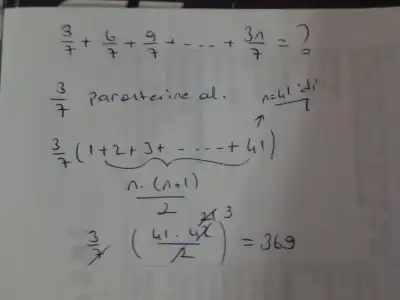 3/7 + 6/7 + 9/7 + .... + 3n/7 = ?
3/7 paranterine al. n=41'di
3/7 (1+2+3+ ----- + 41)
n.(n+1)/2
3/7 (41.42/2) 21 3 = 369